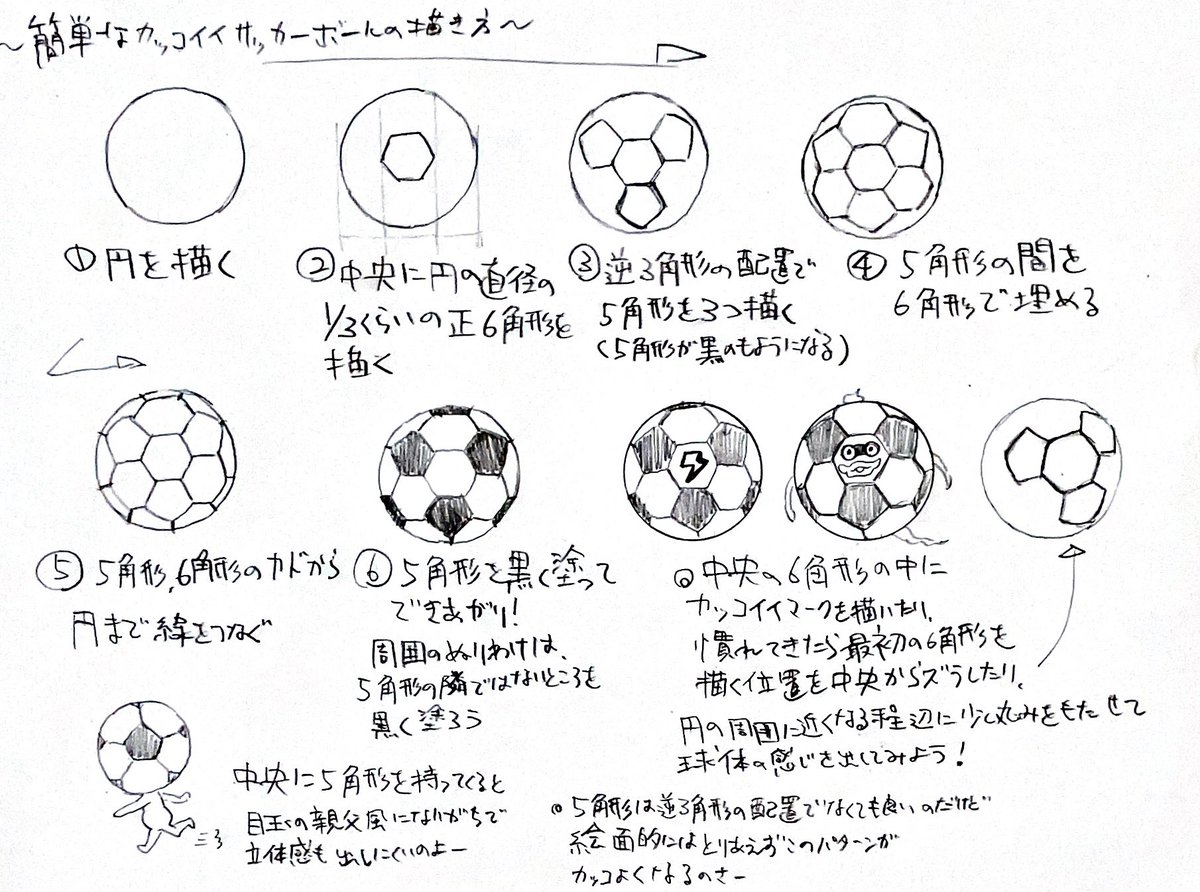 ～簡単なカッコイイサッカーボールの描き方～
①円を描く
②中央に円の直径の
1/3くらいの正6角形を
描く
③逆3角形の配置で
5角形を3つ描く
(5角形が黒のもようになる)
④5角形の間を
6角形で埋める
⑤5角形、6角形のカドから
円まで線をつなぐ
⑥5角形を黒く塗って
できあがり!
周囲のぬりわけは、
5角形の隣ではないところを
黒く塗ろう
中央の6角形の中に
カッコイイマークを描いたり、
慣れてきたら最初の6角形を
描く位置を中央からズラしたり、
円の周囲に近くなる程辺に少し丸みをもたせて
球体の感じを出してみよう!
中央に5角形を持ってくると
目玉の親父風になりがちで
立体感も出しにくいのよー
5角形は逆3角形の配置でなくても良いのだけど
絵面的にはとりあえずこのパターンが
カッコよくなるのさー